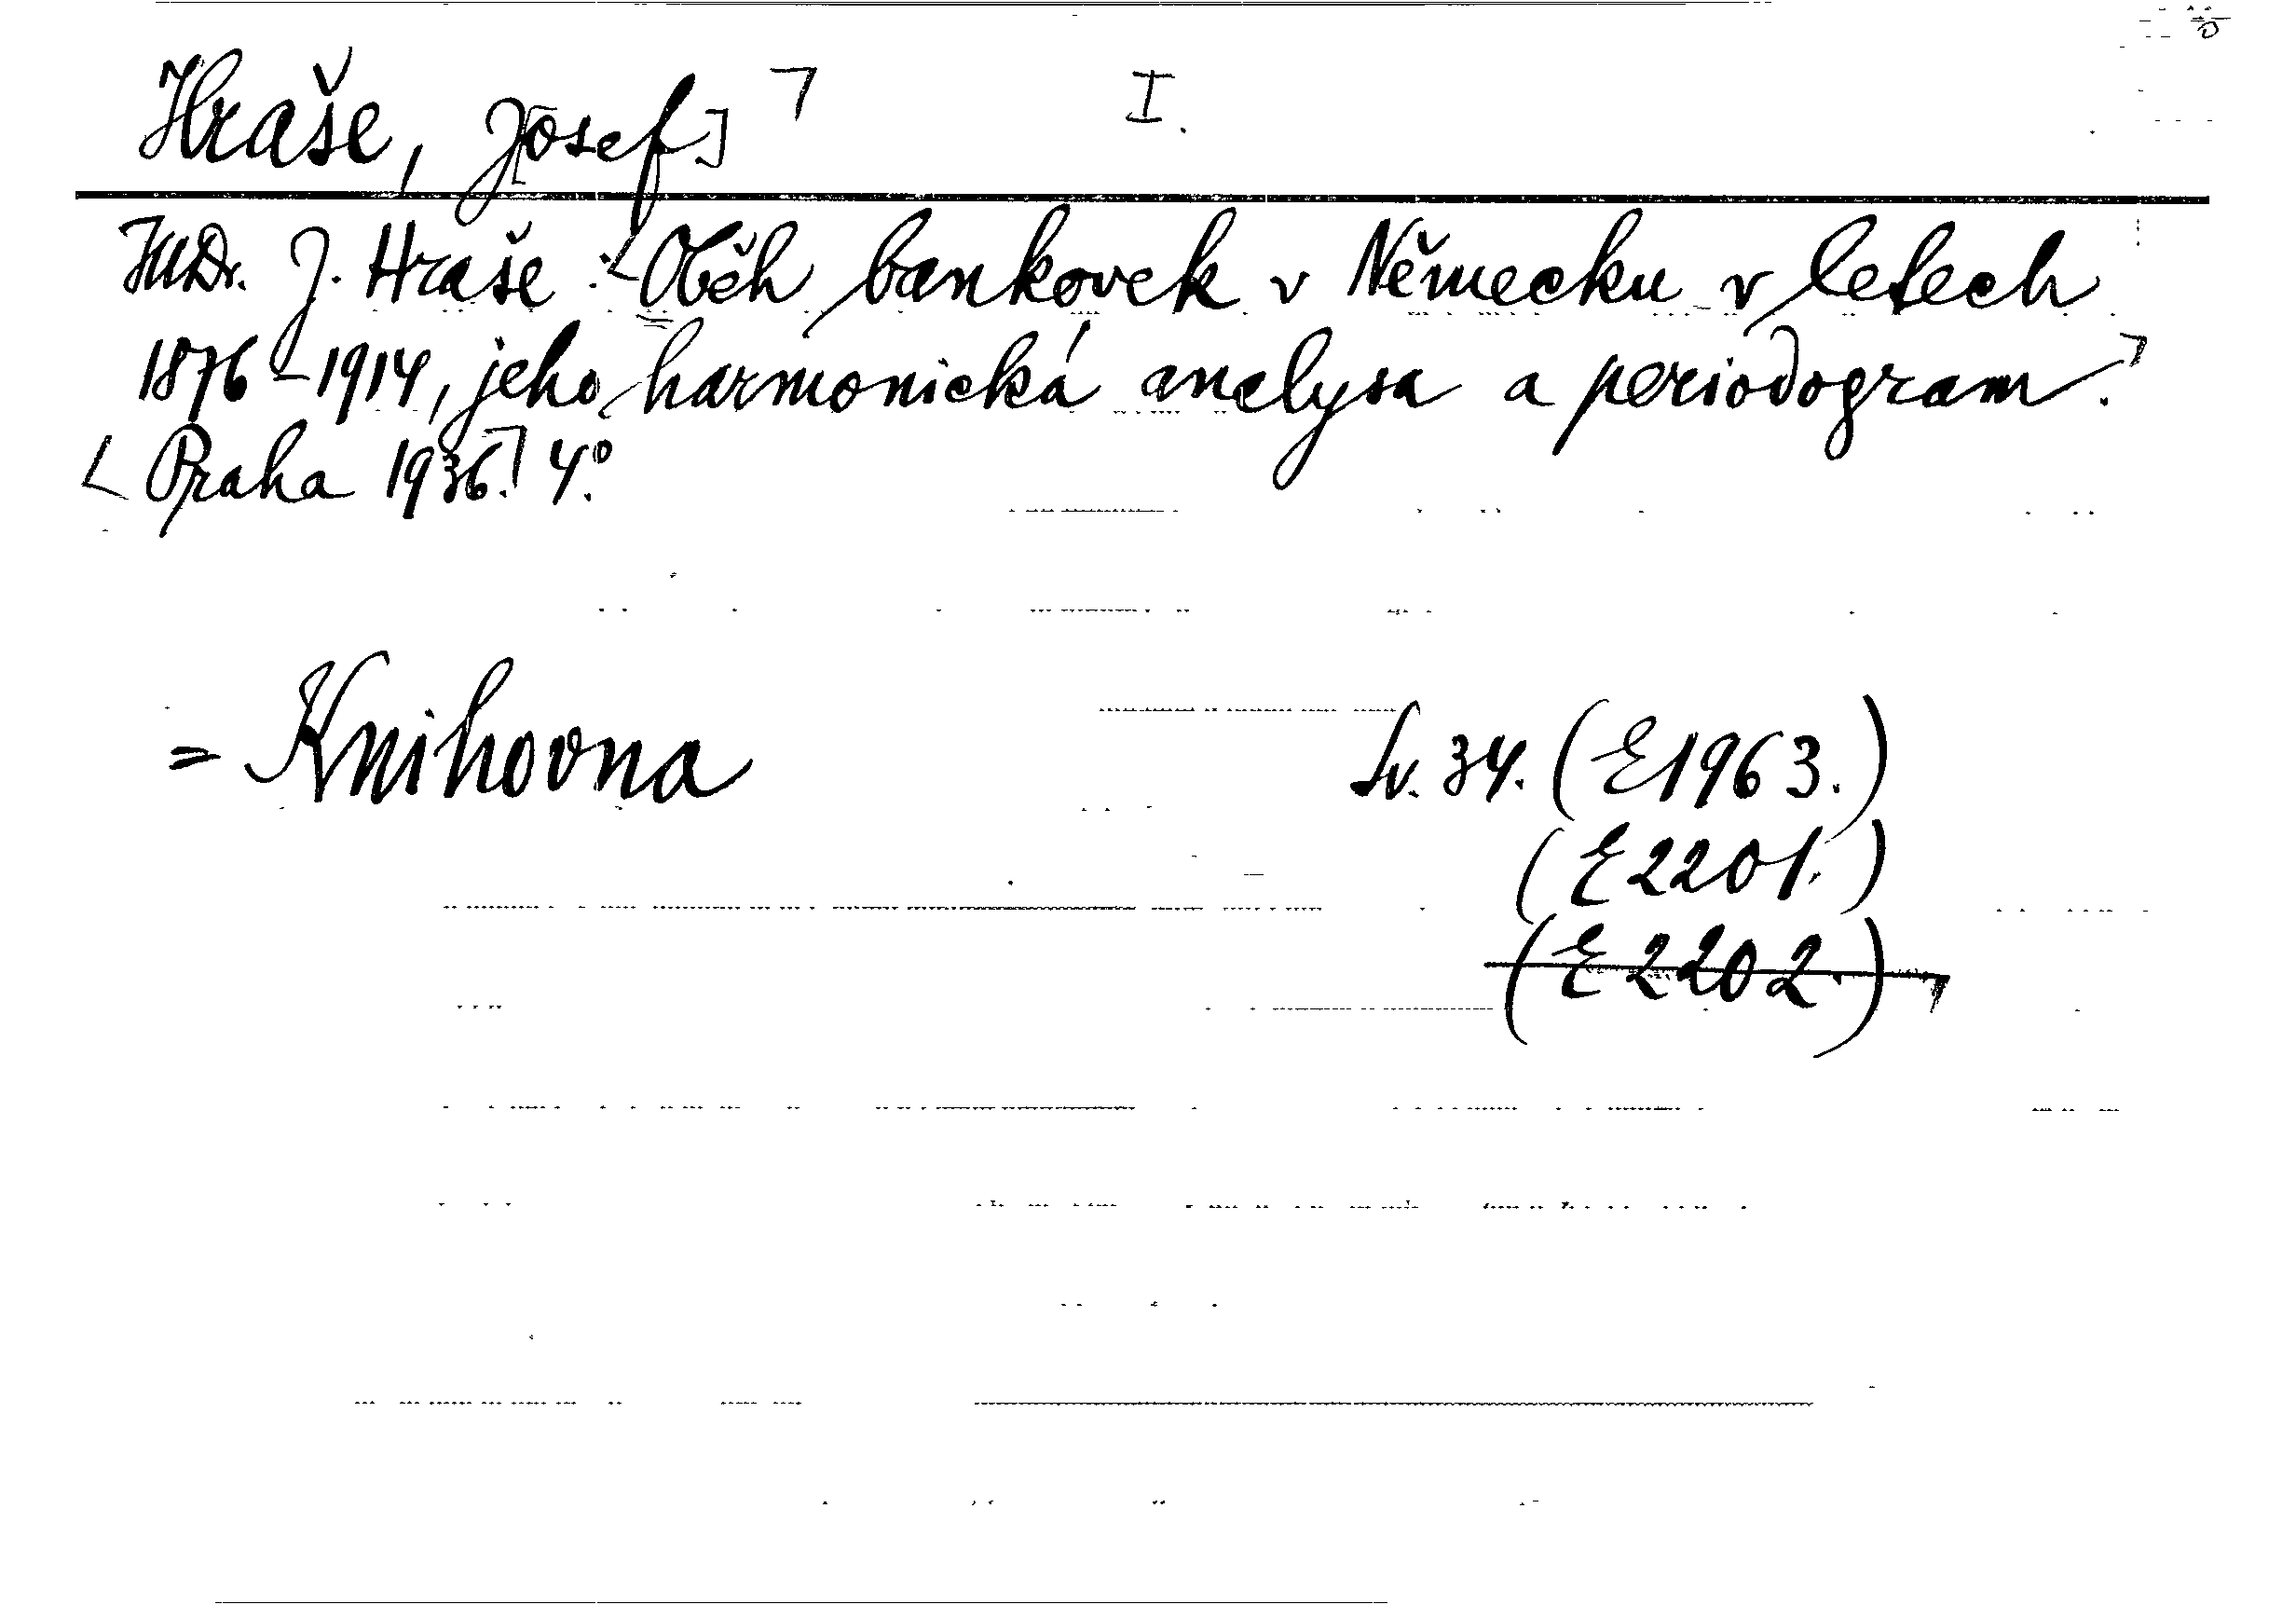 Hraše, J[osef] I.
JUDr. J. Hraše: Oběh bankovek v Německu v letech
1876-1914, jeho harmonická analysa a periodogram.
Praha 1936. 4°.
= Knihovna Sv. 34. (E1963.)
(E2201.)
(E2202.)